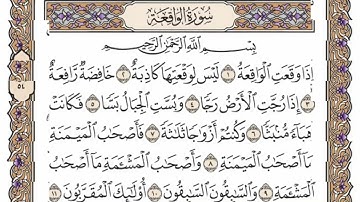 سُورَةُ الوَاقِعَةِ
بِسْمِ اللَّهِ الرَّحْمَٰنِ الرَّحِيمِ
إِذَا وَقَعَتِ الْوَاقِعَةُ ١ لَيْسَ لِوَقْعَتِهَا كَاذِبَةٌ ٢ خَافِضَةٌ رَّافِعَةٌ
٣ إِذَا رُجَّتِ الْأَرْضُ رَجًّا ٤ وَبُسَّتِ الْجِبَالُ بَسًّا ٥ فَكَانَتْ
هَبَاءً مُّنۢبَثًّا ٦ وَكُنتُمْ أَزْوَاجًا ثَلَاثَةً ٧ فَأَصْحَابُ الْمَيْمَنَةِ
مَا أَصْحَابُ الْمَيْمَنَةِ ٨ وَأَصْحَابُ الْمَشْـَٔمَةِ مَا أَصْحَابُ
الْمَشْـَٔمَةِ ٩ وَالسَّابِقُونَ السَّابِقُونَ ١٠ أُولَٰئِكَ الْمُقَرَّبُونَ ١١
٥٤